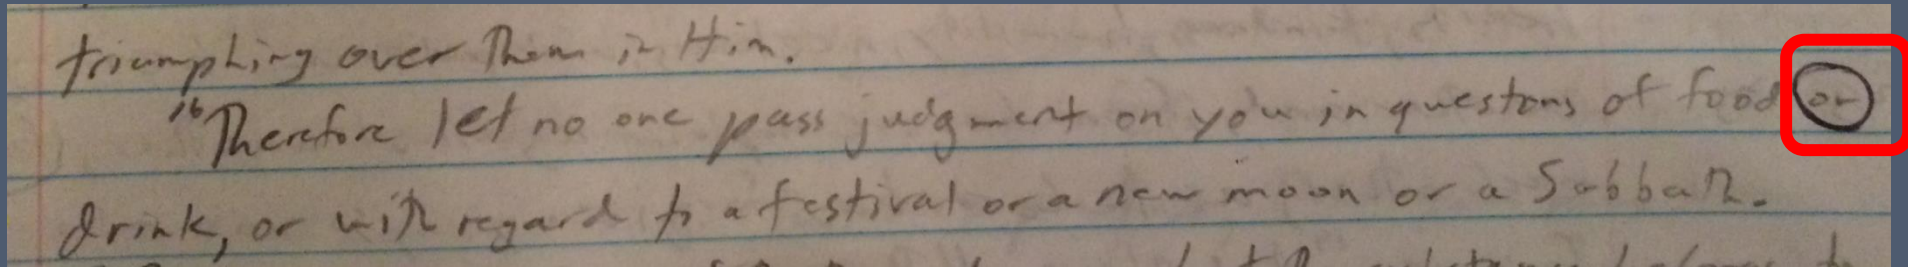 triumphing over them in Him.
16 Therefore let no one pass judgment on you in questons of food or
drink, or with regard to a festival or a new moon or a Sabbath.